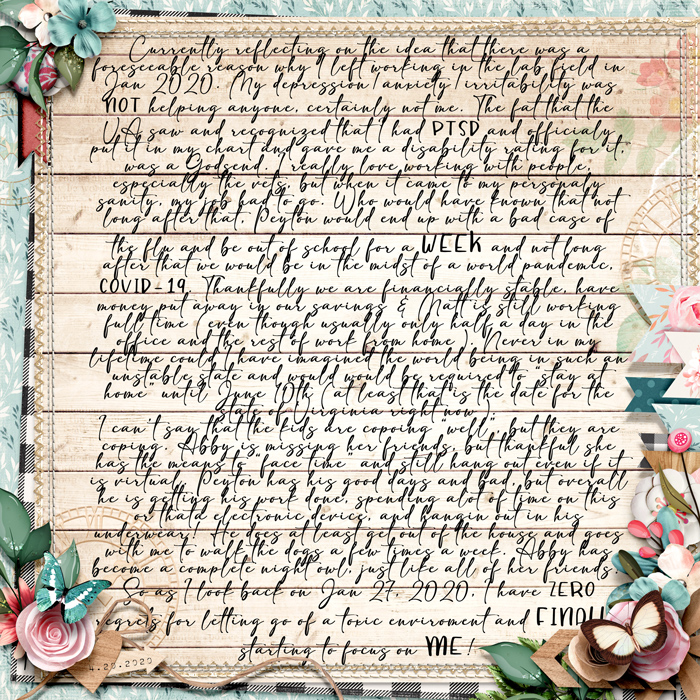 Currently reflecting on the idea that there was a
foreseeable reason why I left working in the lab field in
Jan 2020. My depression/anxiety/irritability was
NOT helping anyone, certainly not me. The fat that the
VA saw and recognized that I had PTSD and officialy
put it in my chart and gave me a disability rating for it,
was a Godsend. I really love working with people,
especially the vets, but when it came to my personaly
sanity, my job had to go. Who would have known that not
long after that, Peyton would end up with a bad case of
the flu and be out of school for a WEEK and not long
after that we would be in the midst of a world pandemic,
COVID-19. Thankfully we are financially stable, have
money put away in our savings & Natt is still working
full time (even though usually only half a day in the
office and the rest of work from home). Never in my
lifetime could I have imagined the world being in such an
unstable state and would would be required to "stay at
home" until June 10th (at least that is the date for the
State of Virginia right now)
I can't say that the kids are copoing "well", but they are
coping. Abby is missing her friends, but thankful she
has the means to "face time" and still hang out even if it
is virtual. Peyton has his good days and bad, but overall
he is getting his work done, spending alot of time on this
or thata electronic device, and hangin out in his
underwear! He does at least get out of the house and goes
with me to walk the dogs a few times a week. Abby has
become a complete night owl, just like all of her friends.
So as I look back on Jan 27, 2020. I have ZERO
regrets for letting go of a toxic enviroment and FINALLY
starting to focus on ME!
4.20.2020